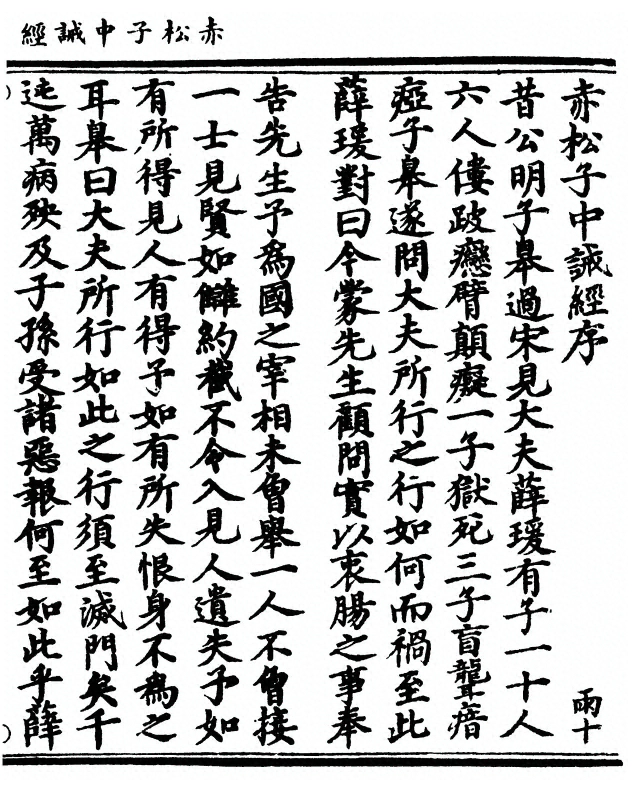 赤松子中誡經
赤松子中誡經序
雨十
昔公明子皋過宋見大夫薛瑗有子一十人
六人傴跛癭臂顛癡一子獄死三子盲聾瘖
瘂子皋遂問大夫所行之行如何而禍至此
薛瑗對曰今蒙先生顧問實以衷腸之事奉
告先生予為國之宰相未曾舉一人不曾接
一士見賢如讎約截不令入見人遺失予如
有所得見人有得予如有所失恨身不為之
耳皋曰大夫所行如此之行須至滅門矣千
迍萬病殃及子孫受諸惡報何至如此乎薛